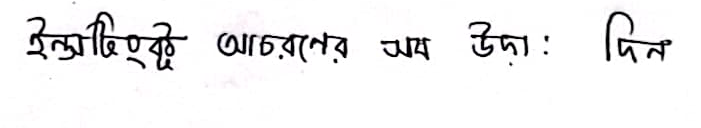 ইন্সটিংক্ট আচরনের সব উদা: দিন